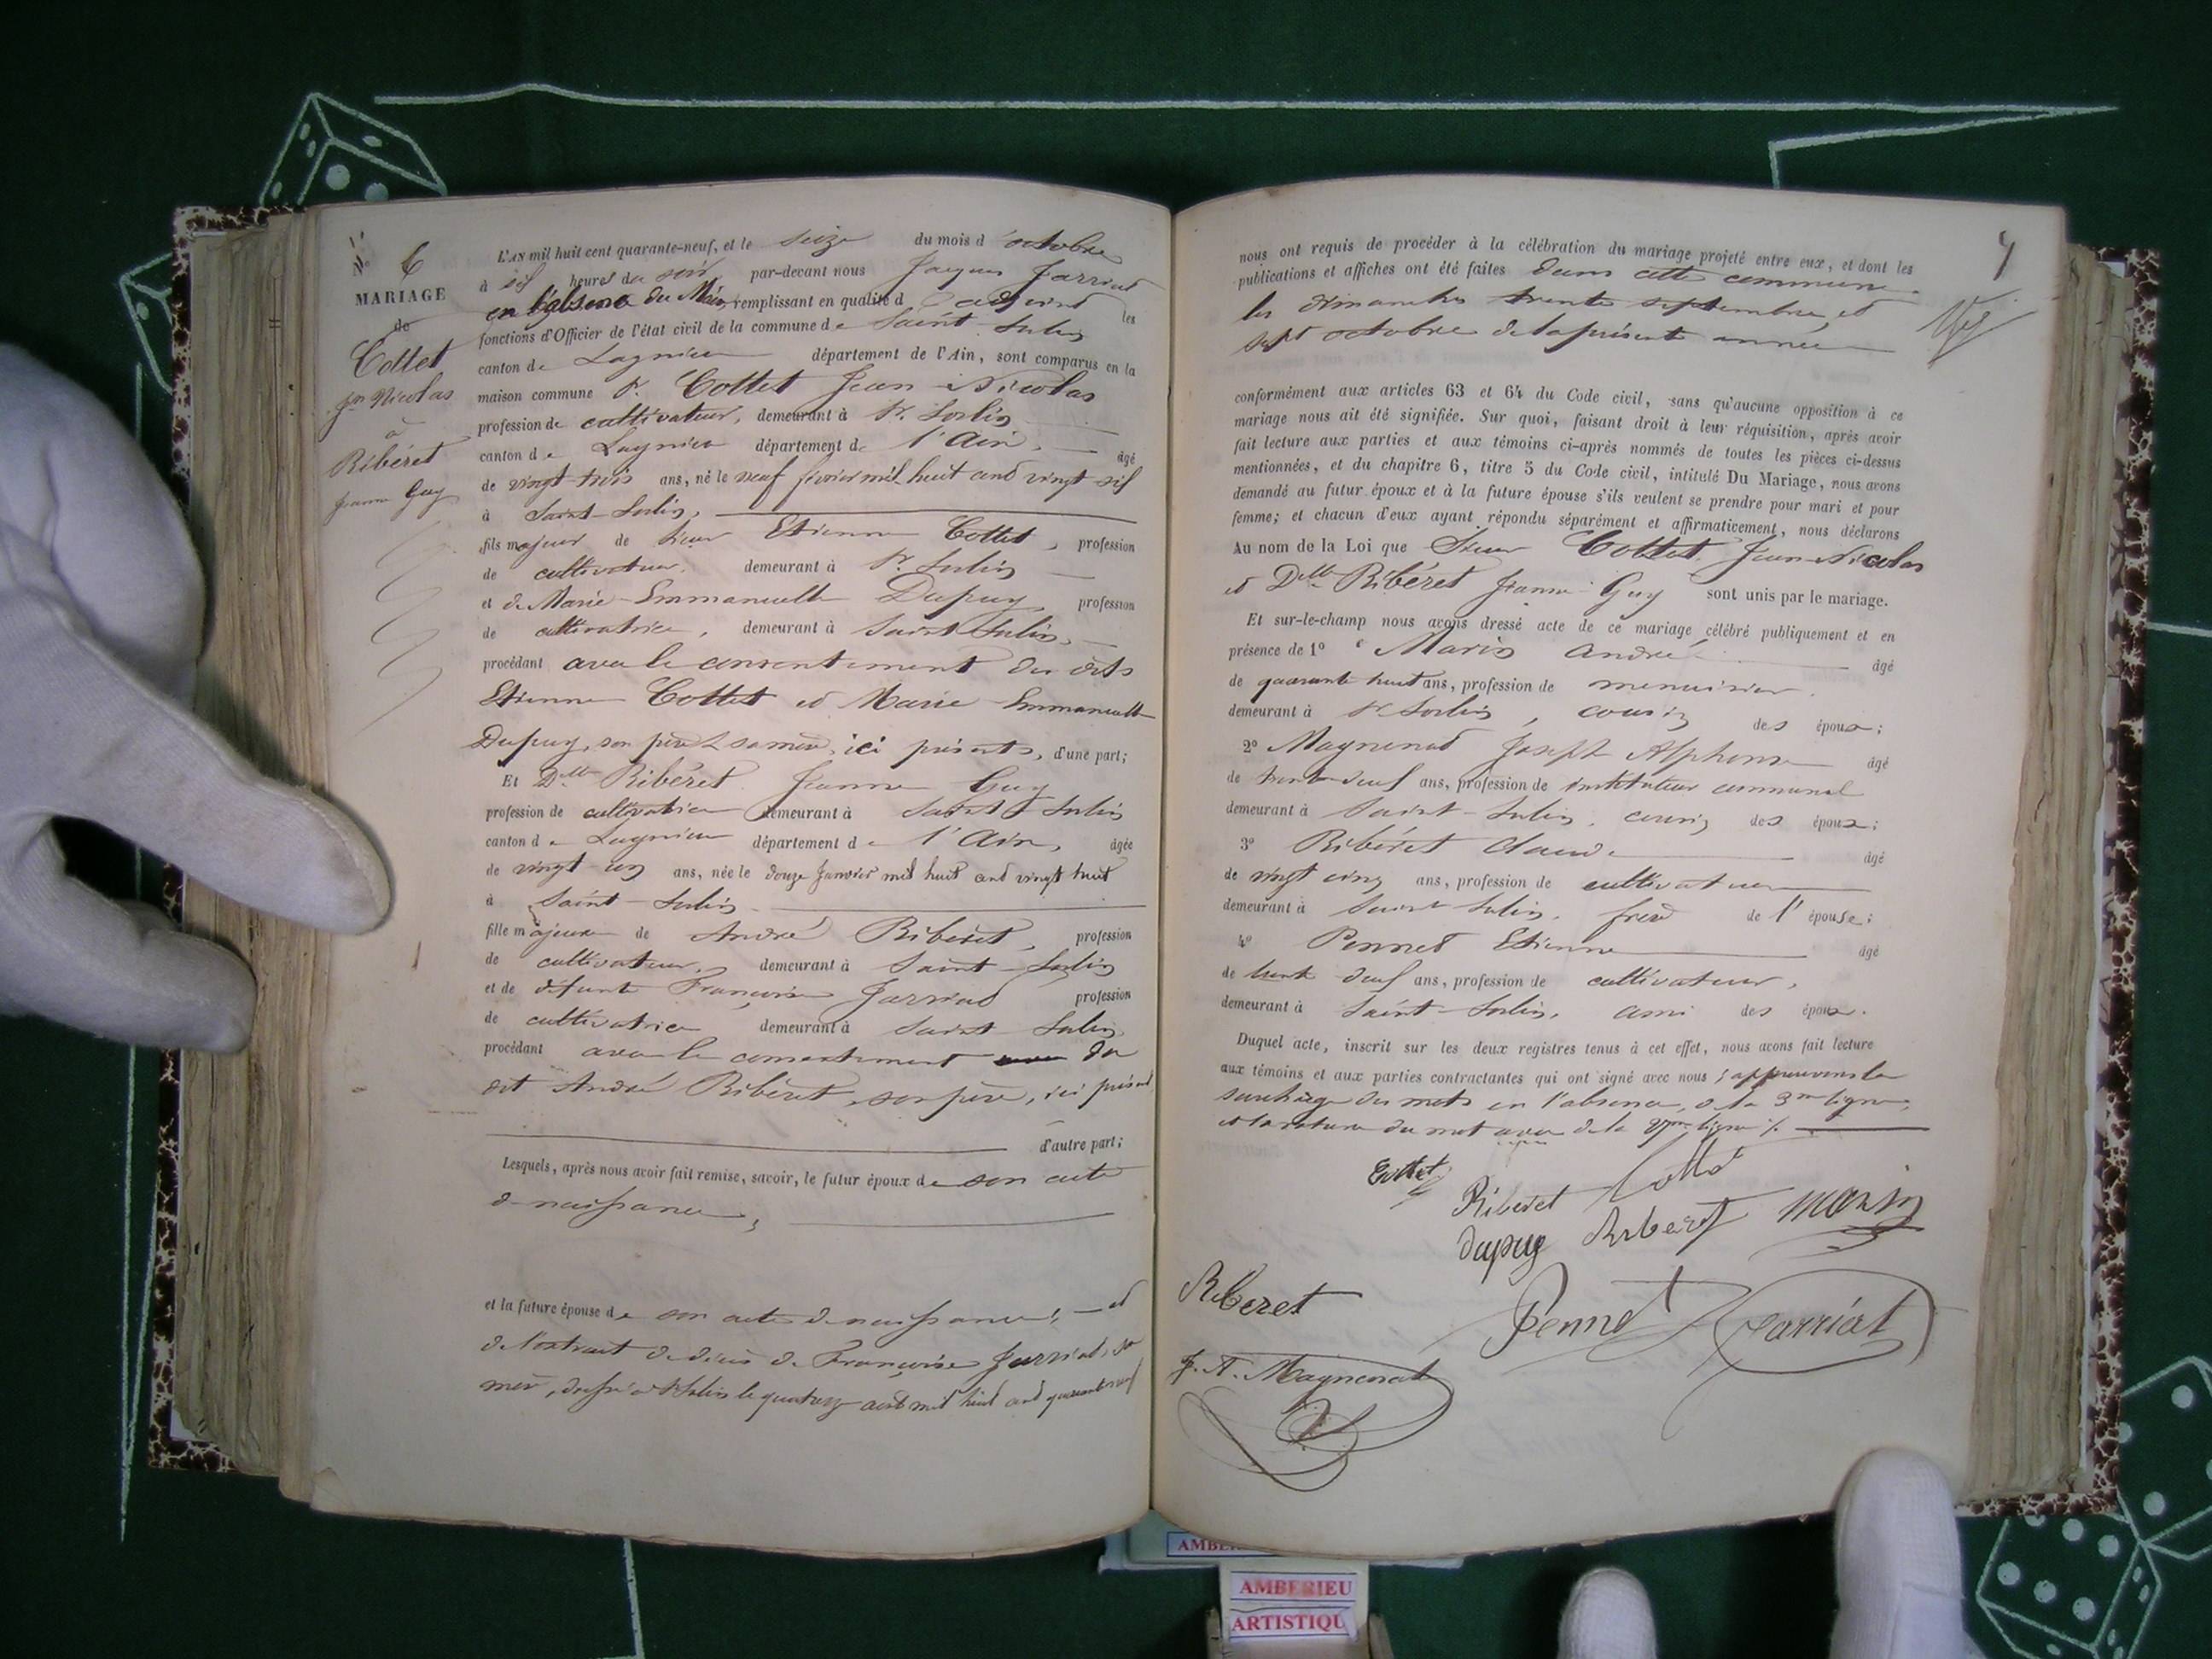 N° 6
MARIAGE
de
Cottet
Jn Nicolas
à
Ribéret
Jeanne Guy
L'AN mil huit cent quarante-neuf, et le seize du mois d'octobre
à six heures du soir, par-devant nous Jacques Jarriat
en l'absence du Maire, remplissant en qualité d'adjoint les
fonctions d'Officier de l'état civil de la commune de Saint-Sorlin
canton de Lagnieu département de l'Ain, sont comparus en la
maison commune Sr. Cottet Jean-Nicolas
profession de cultivateur, demeurant à St. Sorlin
canton de Lagnieu département de l'Ain, âgé
de vingt-trois ans, né le neuf février mil huit cent vingt six
à Saint-Sorlin,
fils majeur de sieur Etienne Cottet, profession
de cultivateur, demeurant à St. Sorlin
et de Marie-Emmanuelle Dupuy, profession
de cultivatrice, demeurant à Saint-Sorlin,
procédant avec le consentement des dits
Etienne Cottet et Marie-Emmanuelle
Dupuy, son père & sa mère, ici présents, d'une part;
Et Delle Ribéret Jeanne Guy
profession de cultivatrice demeurant à Saint-Sorlin
canton de Lagnieu département de l'Ain, âgée
de vingt-un ans, née le douze janvier mil huit cent vingt huit
à Saint-Sorlin
fille majeure de André Ribéret, profession
de cultivateur, demeurant à Saint-Sorlin
et de défunte Françoise Jarriat profession
de cultivatrice demeurant à Saint Sorlin
procédant avec le consentement avec du
dit André Ribéret, son père, ici présent
d'autre part;
Lesquels, après nous avoir fait remise, savoir, le futur époux de son acte
de naissance,
et la future épouse de son acte de naissance, et
de l'extrait de décès de Françoise Jarriat, sa
mère, dressé à St Sorlin le quatorze août mil huit cent quarante neuf
7
nous ont requis de procéder à la célébration du mariage projeté entre eux, et dont les
publications et affiches ont été faites dans cette commune
les dimanches trente septembre et
sept octobre de la présente année
conformément aux articles 63 et 64 du Code civil, sans qu'aucune opposition à ce
mariage nous ait été signifiée. Sur quoi, faisant droit à leur réquisition, après avoir
fait lecture aux parties et aux témoins ci-après nommés de toutes les pièces ci-dessus
mentionnées, et du chapitre 6, titre 5 du Code civil, intitulé Du Mariage, nous avons
demandé au futur époux et à la future épouse s'ils veulent se prendre pour mari et pour
femme; et chacun d'eux ayant répondu séparément et affirmativement, nous déclarons
Au nom de la Loi que Sieur Cottet Jean-Nicolas
et Delle Ribéret Jeanne Guy sont unis par le mariage.
Et sur-le-champ nous avons dressé acte de ce mariage célébré publiquement et en
présence de 1° Marin André âgé
de quarante huit ans, profession de menuisier
demeurant à St Sorlin, cousin des époux;
2° Magnenat Joseph Alphonse âgé
de trente-deux ans, profession de instituteur communal
demeurant à Saint-Sorlin, cousin des époux;
3° Ribéret Claude âgé
de vingt cinq ans, profession de cultivateur
demeurant à Saint Sorlin, frère de l'épouse;
4° Pennet Etienne âgé
de trente deux ans, profession de cultivateur,
demeurant à Saint-Sorlin, ami des époux.
Duquel acte, inscrit sur les deux registres tenus à cet effet, nous avons fait lecture
aux témoins et aux parties contractantes qui ont signé avec nous; approuvons la
surcharge des mots en l'absence, de la 3me ligne,
et la rature du mot avec de la 27me ligne
Cottet
Riberet Cottet
Dupuy Riberet Marin
Riberet
Pennet Jarriat
J. A. Magnenat
AMBERIEU
ARTISTIQU